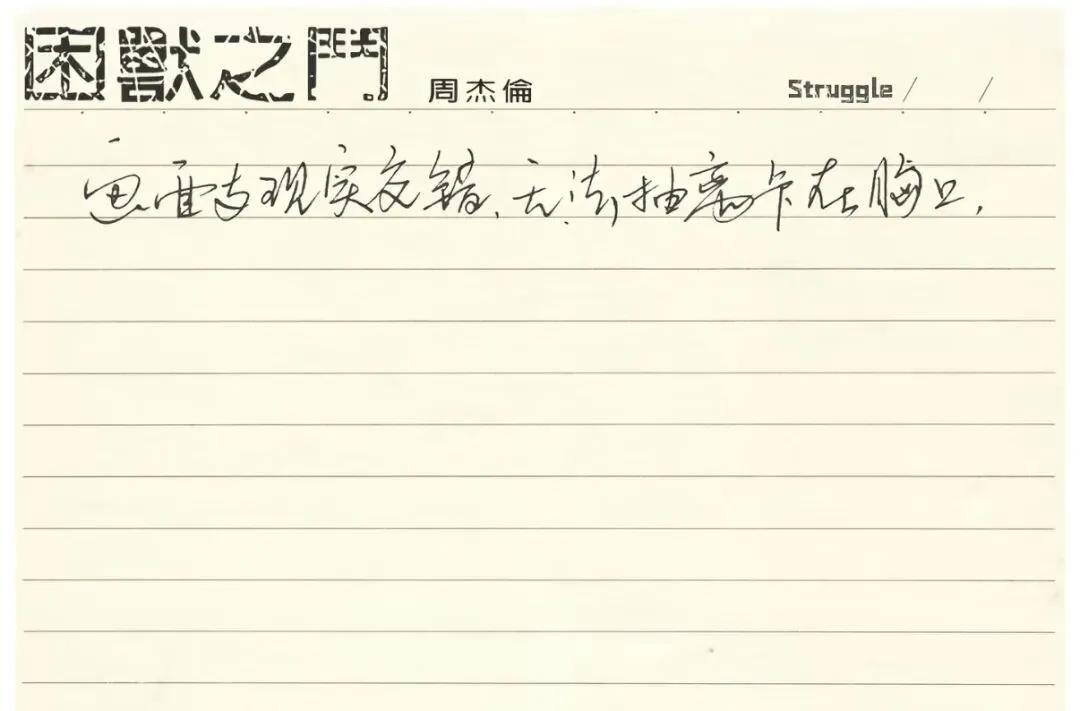 困獸之鬥 周杰倫 Struggle / /
画面与现实交错、无法抽离卡在胸口,